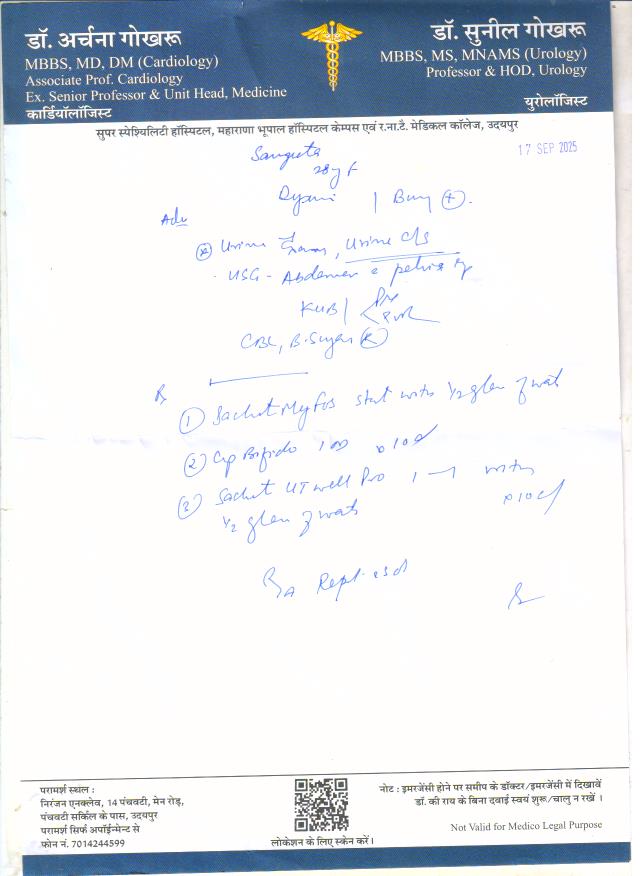 डॉ. अर्चना गोखरू
MBBS, MD, DM (Cardiology)
Associate Prof. Cardiology
Ex. Senior Professor & Unit Head, Medicine
कार्डियॉलॉजिस्ट
डॉ. सुनील गोखरू
MBBS, MS, MNAMS (Urology)
Professor & HOD, Urology
युरोलॉजिस्ट
सुपर स्पेश्यिलिटी हॉस्पिटल, महाराणा भूपाल हॉस्पिटल केम्पस एवं र.ना.टै. मेडिकल कॉलेज, उदयपुर
17 SEP 2025
Sangeeta
28y F
| Burn (+).
Adv
Urine Exam, Urine C/S
USG - Abdomen & pelvis
KUB
CBC, B.Sugar (R)
Rx
(1) Sachet Myfos stat with 1/2 glass of wat
(2) Cap Bifido 1 OD x 10d
(3) Sachet UT well Pro 1—1 with
1/2 glass of wat x 10d
परामर्श स्थल :
निरंजन एनक्लेव, 14 पंचवटी, मेन रोड़,
पंचवटी सर्किल के पास, उदयपुर
परामर्श सिर्फ अपॉईन्मेन्ट से
फोन नं. 7014244599
लोकेशन के लिए स्केन करें।
नोट : इमरजेंसी होने पर समीप के डॉक्टर/इमरजेंसी में दिखावें
डॉ. की राय के बिना दवाई स्वयं शुरू/चालु न रखें ।
Not Valid for Medico Legal Purpose